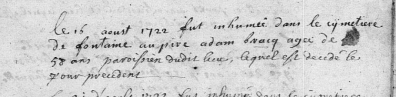 le 16 aoust 1722 fut inhumée dans le cymetiere
de fontaine au pire adam bracq agée de
58 ans paroissien dudit lieu, lequel est decedé le
jour precedent
fut inhumé dans le cymetiere